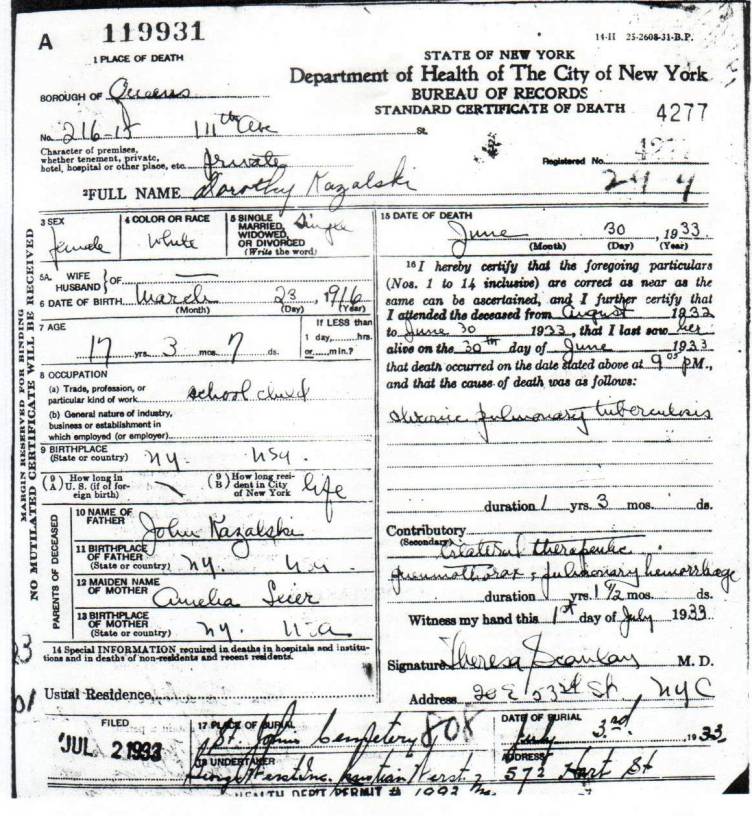 A 119931
14-II 25-2608-31-B.P.
1 PLACE OF DEATH
STATE OF NEW YORK
Department of Health of The City of New York
BUREAU OF RECORDS
STANDARD CERTIFICATE OF DEATH 4277
BOROUGH OF Queens
No. 216-15 111th Ave St.
Character of premises,
whether tenement, private,
hotel, hospital or other place, etc. private
Registered No.
2 FULL NAME Dorothy Kazalski
3 SEX female
4 COLOR OR RACE White
5 SINGLE MARRIED, WIDOWED, OR DIVORCED (Write the word) Single
5A. WIFE HUSBAND } OF —
6 DATE OF BIRTH March 23, 1916
(Month) (Day) (Year)
7 AGE 17 yrs. 3 mos. 7 ds.
If LESS than
1 day, hrs.
or min.?
8 OCCUPATION
(a) Trade, profession, or
particular kind of work school child
(b) General nature of industry,
business or establishment in
which employed (or employer)
9 BIRTHPLACE
(State or country) N.Y. USA.
(9 A) How long in U. S. (if of foreign birth)
(9 B) How long resident in City of New York life
PARENTS OF DECEASED
10 NAME OF FATHER John Kazalski
11 BIRTHPLACE OF FATHER
(State or country) N.Y.
12 MAIDEN NAME OF MOTHER Amelia Seier
13 BIRTHPLACE OF MOTHER
(State or country) N.Y.
14 Special INFORMATION required in deaths in hospitals and institu-
tions and in deaths of non-residents and recent residents.
Usual Residence
MARGIN RESERVED FOR BINDING
NO MUTILATED CERTIFICATE WILL BE RECEIVED
15 DATE OF DEATH
June 30, 1933
(Month) (Day) (Year)
16 I hereby certify that the foregoing particulars
(Nos. 1 to 14 inclusive) are correct as near as the
same can be ascertained, and I further certify that
I attended the deceased from August 1932
to June 30 1933, that I last saw her
alive on the 30th day of June 1933
that death occurred on the date stated above at 9 05 P.M.,
and that the cause of death was as follows:
chronic pulmonary tuberculosis
duration 1 yrs. 3 mos. ds.
Contributory
(Secondary) bilateral therapeutic
pneumothorax, pulmonary hemorrhage
duration yrs. 1 1/2 mos. ds.
Witness my hand this 1st day of July 1933
Signature Theresa Scanlan M. D.
Address 20 E 53rd St., NYC
FILED
JUL 2 1933
17 PLACE OF BURIAL
St. Johns Cemetery 808
DATE OF BURIAL
July 3rd 1933
18 UNDERTAKER
George Werst Inc.
ADDRESS
572 Hart St
HEALTH DEPT PERMIT #